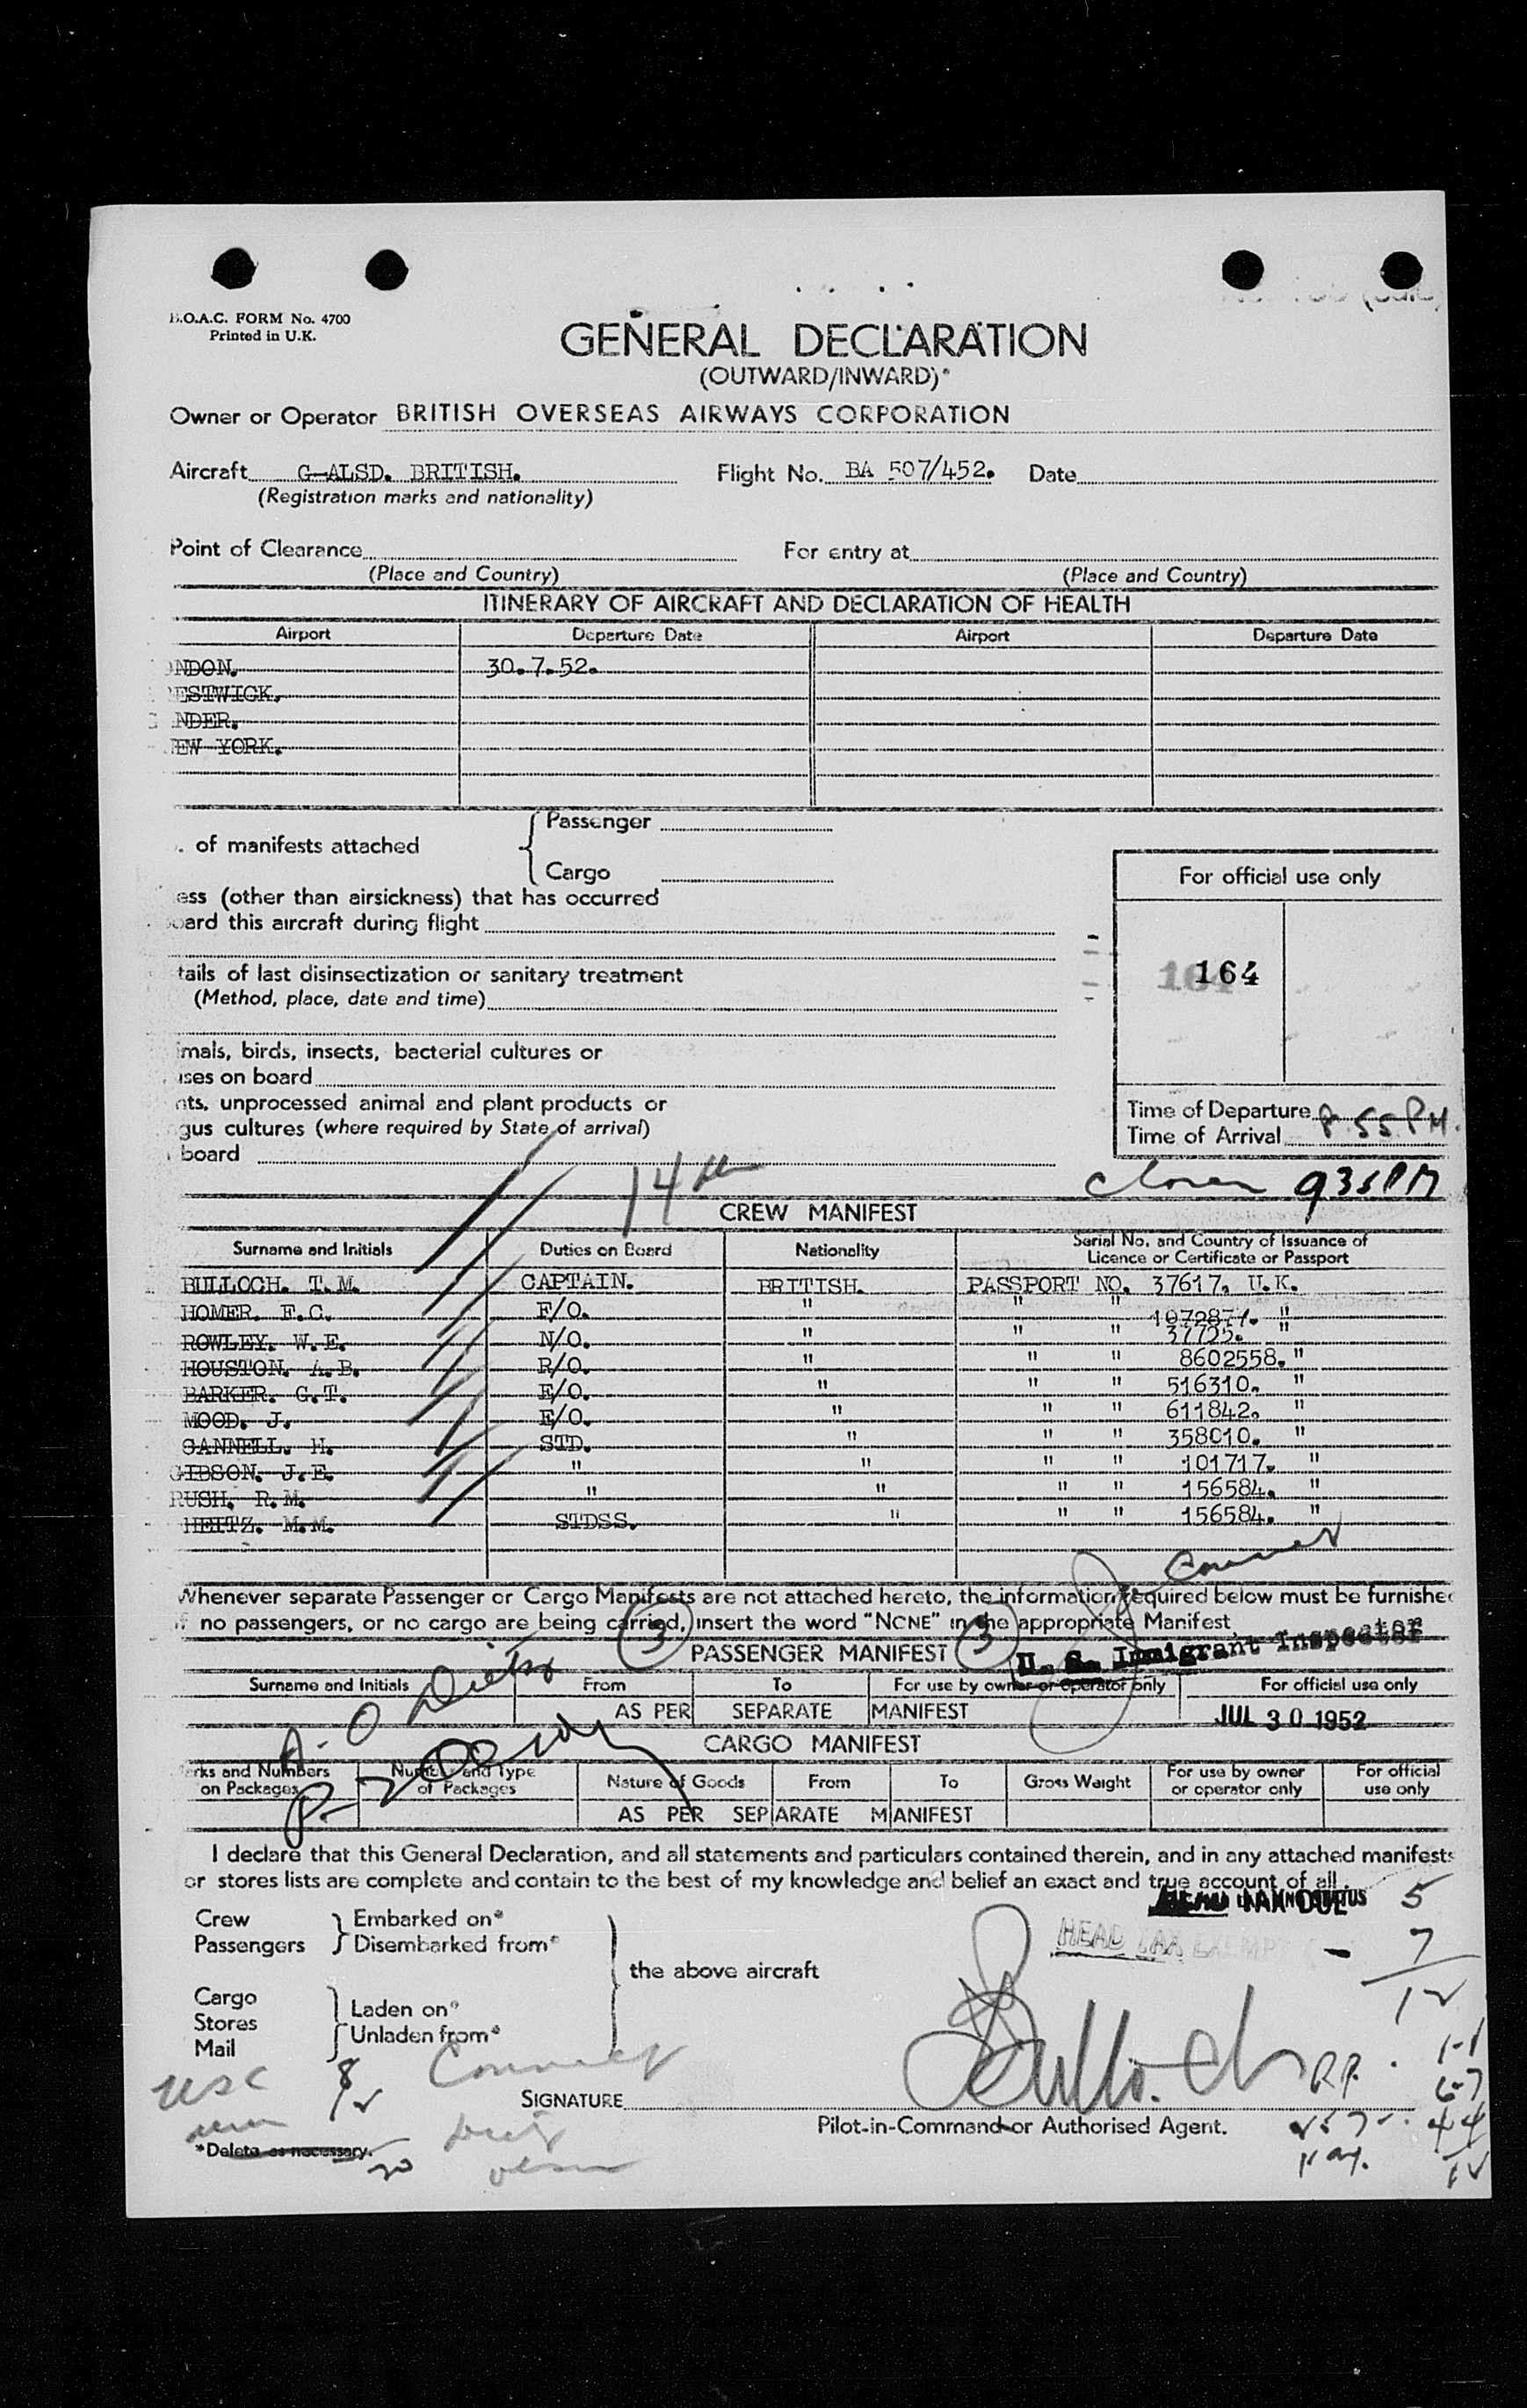 B.O.A.C. FORM No. 4700
Printed in U.K.
GENERAL DECLARATION
(OUTWARD/INWARD)*
Owner or Operator BRITISH OVERSEAS AIRWAYS CORPORATION
Aircraft G-ALSD. BRITISH. Flight No. BA 507/452. Date
(Registration marks and nationality)
Point of Clearance For entry at
(Place and Country) (Place and Country)
ITINERARY OF AIRCRAFT AND DECLARATION OF HEALTH
Airport Departure Date Airport Departure Date
ONDON. 30.7.52.
ESTWICK.
NDER.
EW YORK.
Passenger
. of manifests attached
Cargo
For official use only
ess (other than airsickness) that has occurred
oard this aircraft during flight
tails of last disinsectization or sanitary treatment
164
(Method, place, date and time)
imals, birds, insects, bacterial cultures or
uses on board
nts, unprocessed animal and plant products or
Time of Departure
gus cultures (where required by State of arrival)
Time of Arrival 8.55 PM.
board
14th
935 PM
CREW MANIFEST
Surname and Initials Duties on Board Nationality Serial No. and Country of Issuance of Licence or Certificate or Passport
BULLOCH. T.M. CAPTAIN. BRITISH. PASSPORT NO. 37617, U.K.
HOMER. F.C. F/O. " " " 1072871. "
ROWLEY. W.E. N/O. " " " 37725. "
HOUSTON. A.B. R/O. " " " 8602558. "
BARKER. G.T. E/O. " " " 516310. "
MOOD. J. E/O. " " " 611842. "
CANNELL. H. STD. " " " 358010. "
GIBSON. J.E. " " " " 101717. "
RUSH. R.M. " " " " 156584. "
HEITZ. M.M. STDSS. " " " 156584. "
Whenever separate Passenger or Cargo Manifests are not attached hereto, the information required below must be furnishe
if no passengers, or no cargo are being carried, insert the word "NONE" in the appropriate Manifest.
3 3
PASSENGER MANIFEST
U. S. Immigrant Inspector
Surname and Initials From To For use by owner or operator only For official use only
AS PER SEPARATE MANIFEST JUL 30 1952
CARGO MANIFEST
Marks and Numbers on Packages Number and Type of Packages Nature of Goods From To Gross Weight For use by owner or operator only For official use only
AS PER SEPARATE MANIFEST
I declare that this General Declaration, and all statements and particulars contained therein, and in any attached manifests
or stores lists are complete and contain to the best of my knowledge and belief an exact and true account of all
5
Crew Embarked on*
Passengers Disembarked from*
HEAD TAX EXEMPT
7
12
the above aircraft
Cargo Laden on*
Stores Unladen from*
Mail
USC 8
12
Bulloch
SIGNATURE
Pilot-in-Command or Authorised Agent.
*Delete as necessary.
20